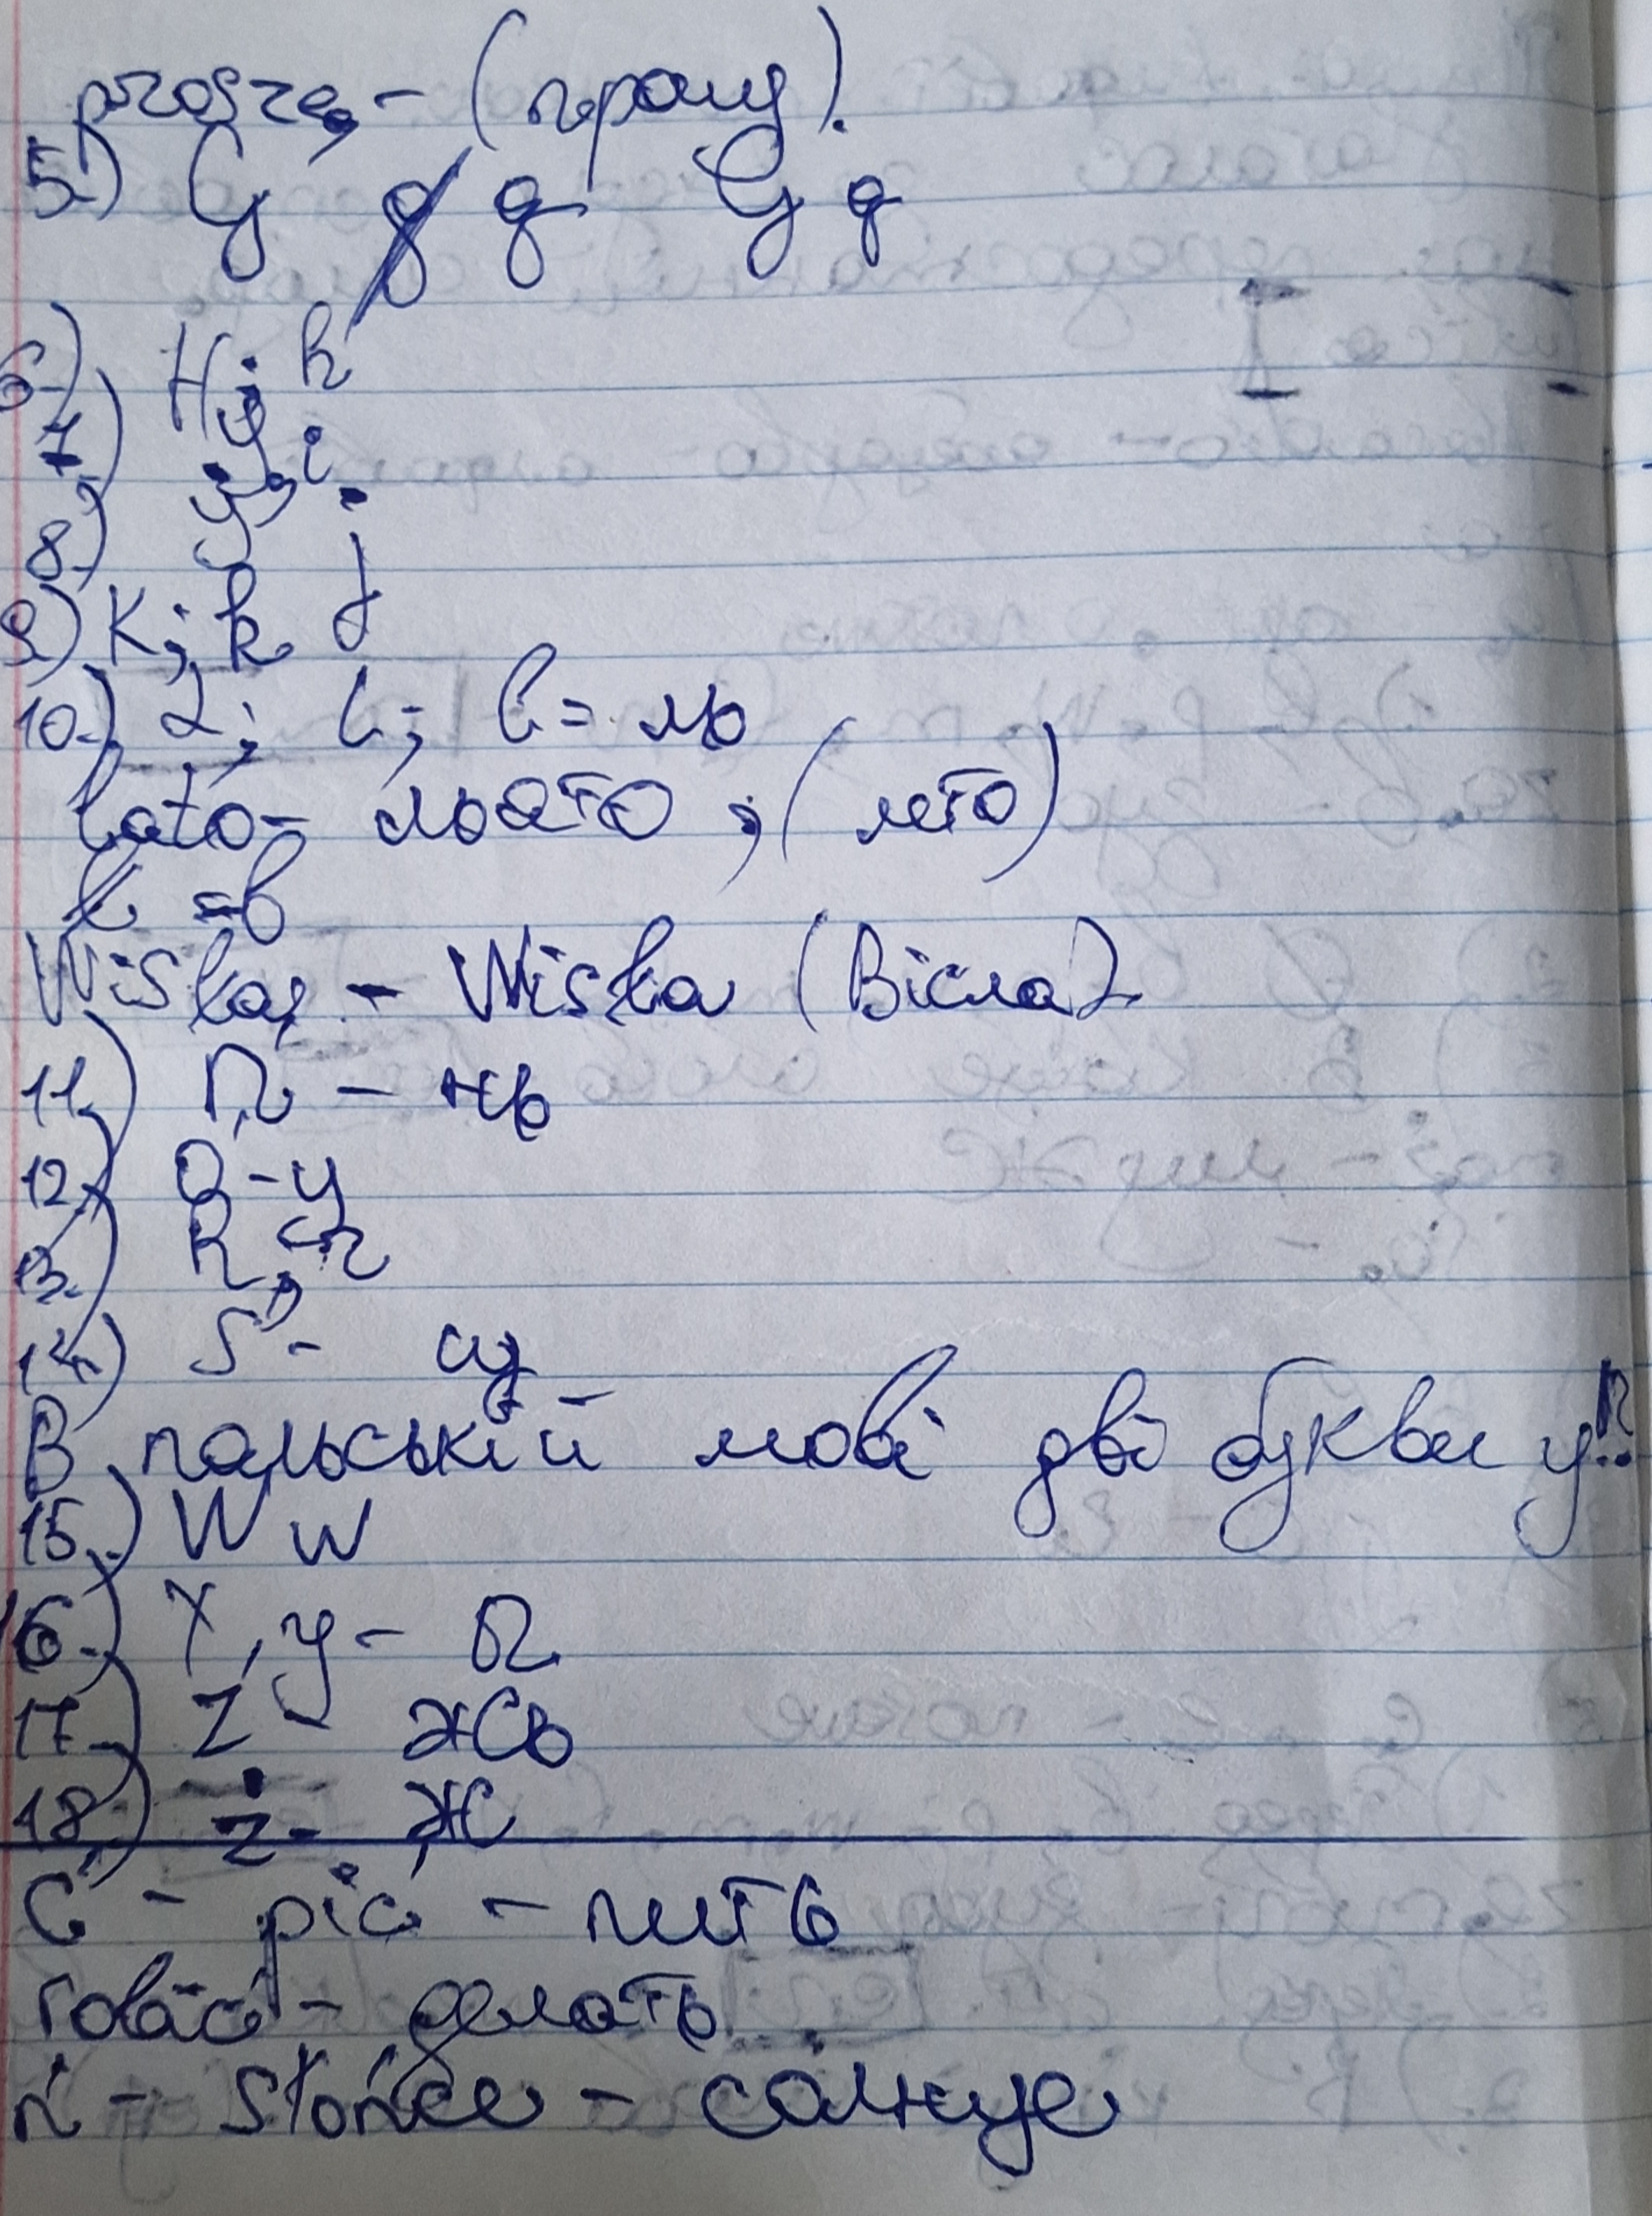 proszę, - (прошу).
5.) G g g G g
6.) H; h
7.) y, i
8.) y, j
9.) K; k
10.) L; l; l = ль
lato - льато, (лето)
ł = в
Wisła, - Wisła (Вісла)
11.) ń - нь
12.) Ó - у
13.) R, r
14.) Ś - щ
В польській мові дві букви у!!
15.) W w
16.) X, y -
17.) Ź - жсь
18.) ż - ж
ć - pić - пить
robić - делать
ń - słońce - солнце